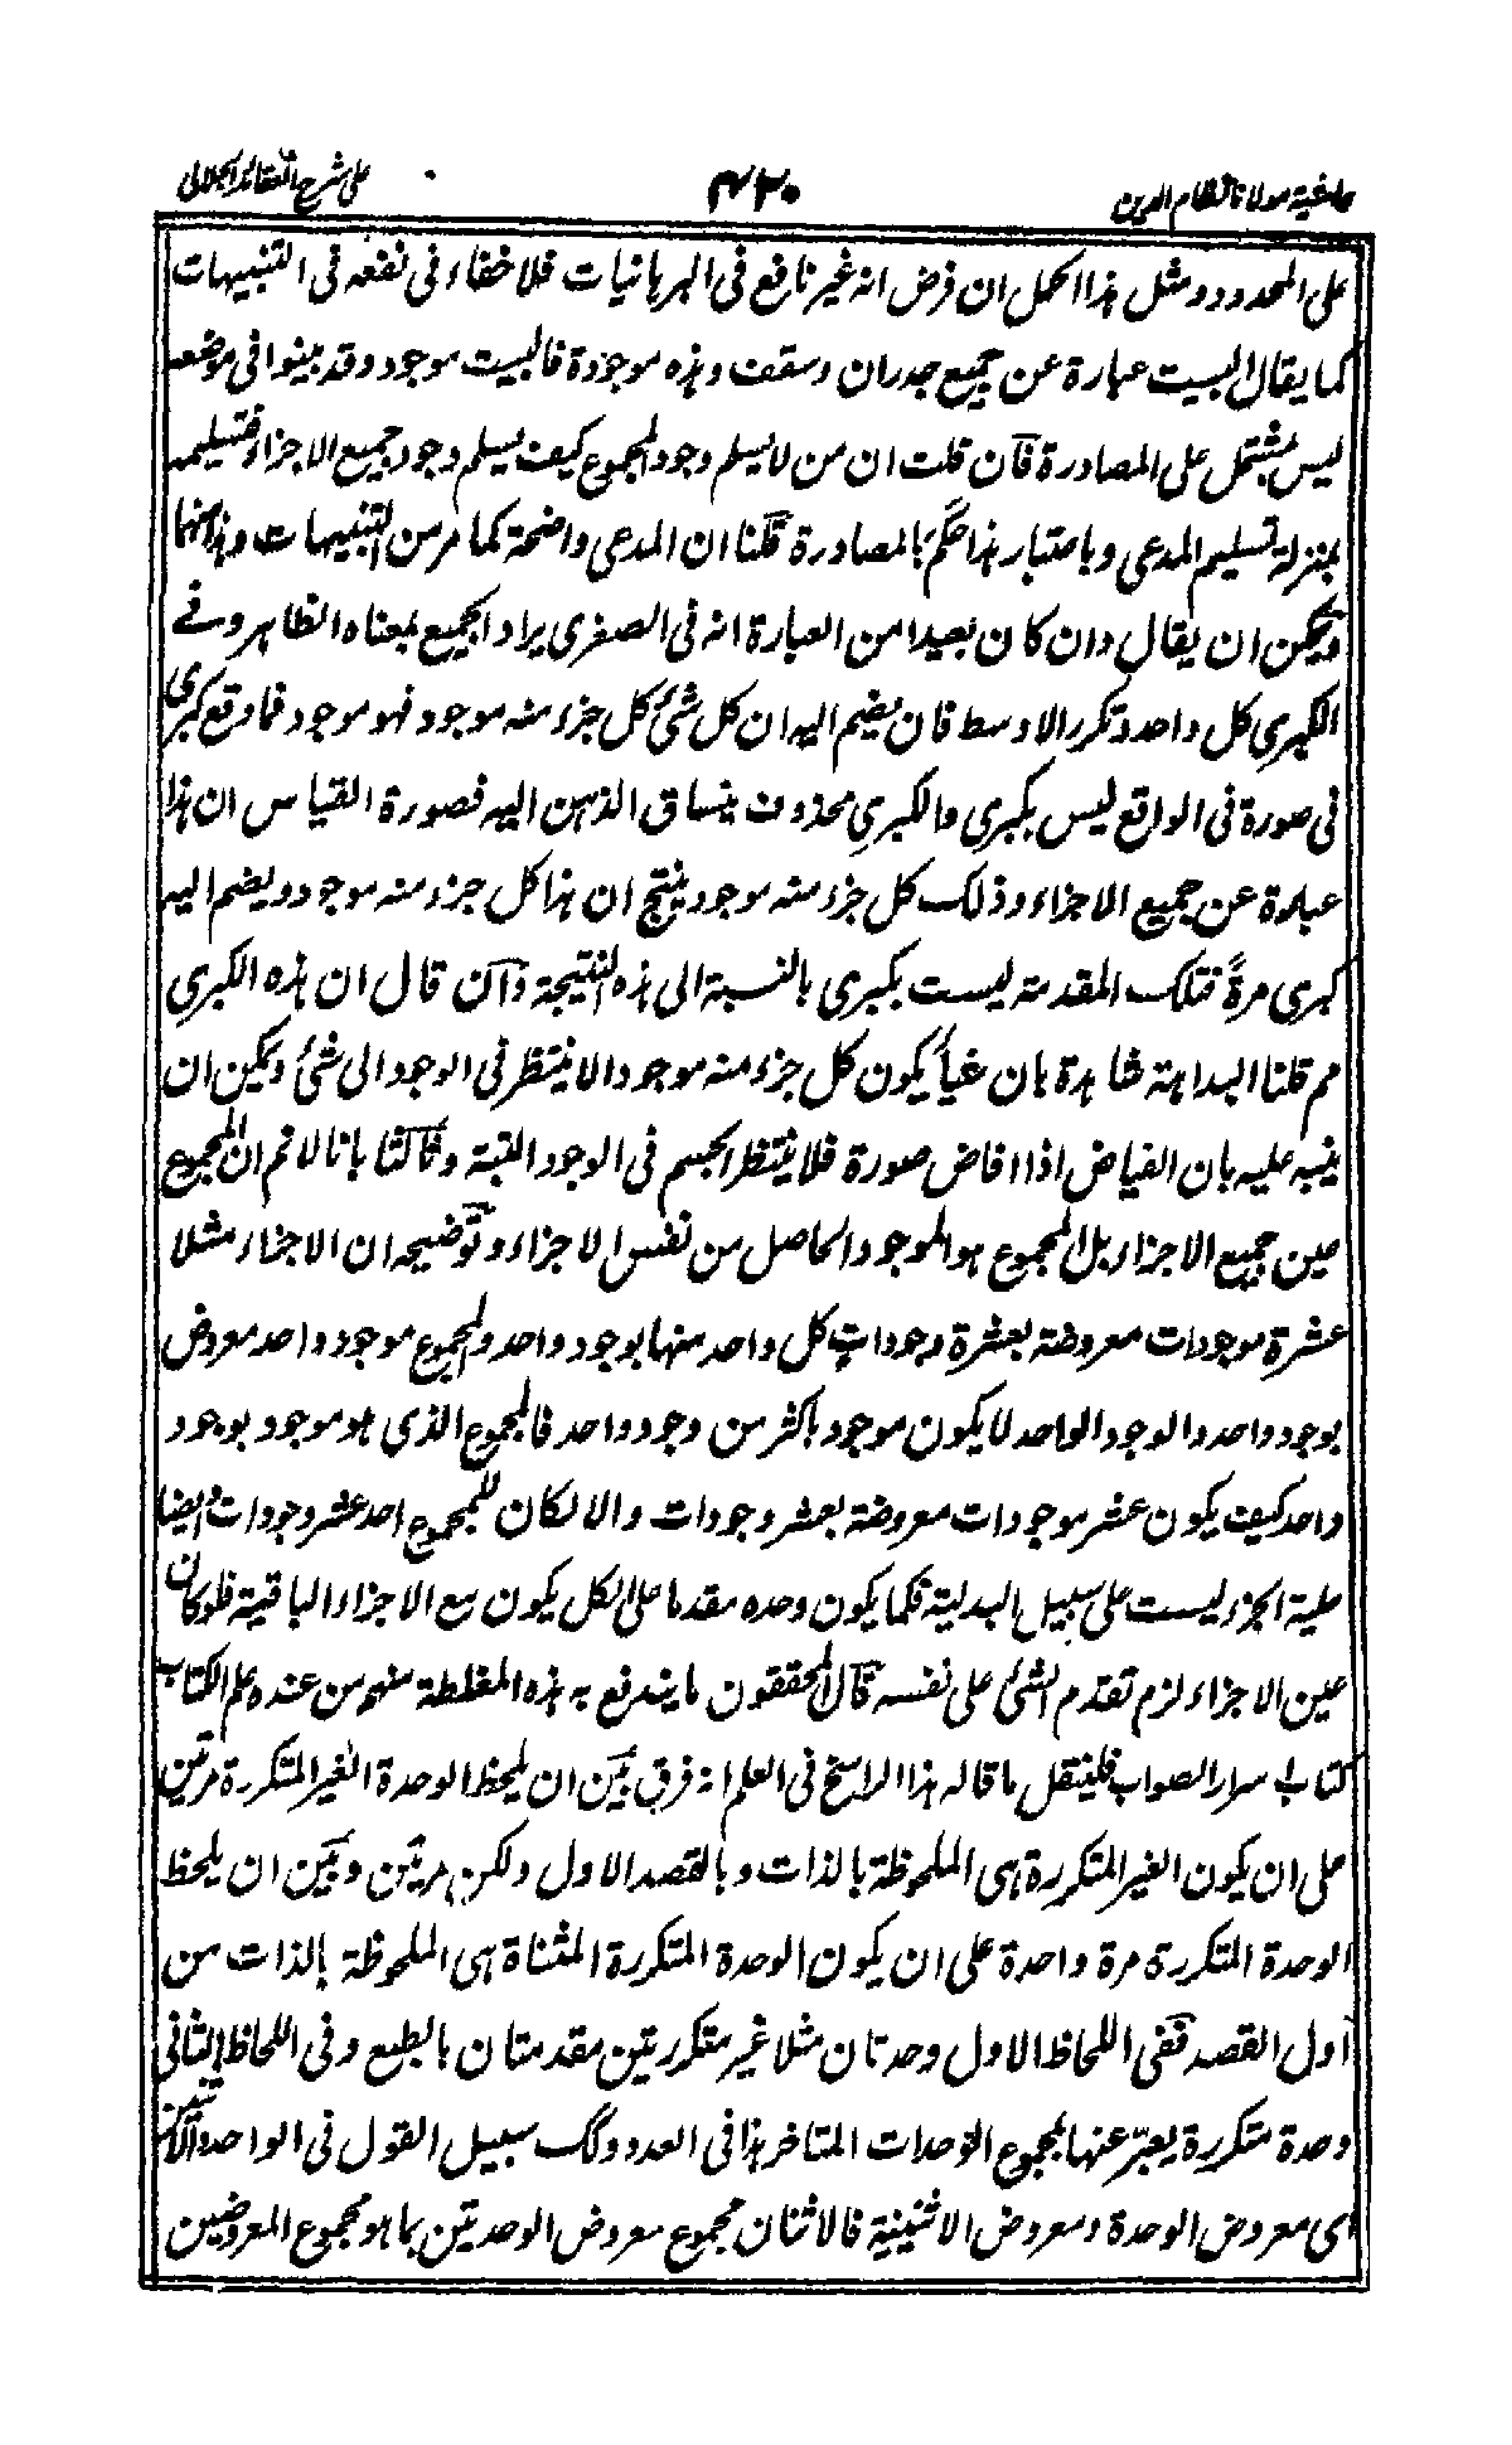 حاشية مولانا نظام الدين ٤٢٠ على شرح العقائد الجلالى
على المحدود ومثل هذا الحمل ان فرض انه غير نافع فى البرهانيات فلا خفاء فى نفعه فى التنبيهات
كما يقال البيت عبارة عن جميع جدران وسقف وهذه موجودة فالبيت موجود وقد بينوا فى موضعه
ليس بمشتمل على المصادرة فان قلت ان من لا يسلم وجود المجموع كيف يسلم وجود جميع الاجزاء فتسليمه
بمنزلة تسليم المدعى وباعتبار هذا حكم بالمصادرة قلنا ان المدعى واضحة كما مر من التنبيهات وهذا منها
ويمكن ان يقال وان كان بعيدا من العبارة انه فى الصغرى يراد الجميع بمعناه الظاهر وفے
الكبرى كل واحد وتكرر الاوسط فان يضم اليه ان كل شئ كل جزء منه موجود فهو موجود فما وقع كبرى
فى صورة فى الواقع ليس بكبرى والكبرى محذوف ينساق الذهن اليه فصورة القياس ان هذا
عبارة عن جميع الاجزاء وذلك كل جزء منه موجود ينتج ان هذا كل جزء منه موجود ويضم اليه
كبرى مرةً فتلك المقدمة ليست بكبرى بالنسبة الى هذه النتيجة وان قال ان هذه الكبرى
مم قلنا البداهة شاهدة بان شيأً يكون كل جزء منه موجودا لا ينتظر فى الوجود الى شئ ويمكن ان
ينبه عليه بان الفياض اذا افاض صورة فلا ينتظر الجسم فى الوجود البتة وثالثا بانا لا نم ان المجموع
عين جميع الاجزاء بل المجموع هو الموجود الحاصل من نفس الاجزاء وتوضيحه ان الاجزاء مثلا
عشرة موجودات معروضة بعشرة وجودات كل واحد منها بوجود واحد والمجموع موجود واحد معروض
بوجود واحد والوجود الواحد لا يكون موجود باكثر من وجود واحد فالمجموع الذي هو موجود بوجود
واحد كيف يكون عشر موجودات معروضة بعشر وجودات والا لكان للمجموع احد عشر وجودات وايضا
علية الجزء ليست على سبيل البدلية فكما يكون وحده مقدما على الكل يكون مع الاجزاء الباقية فلو كان
عين الاجزاء لزم تقدم الشئ على نفسه قال المحققون ما يندفع به هذه المغلطة منهم من عنده علم الكتاب
كتاب اسرار الصواب فلينقل ما قاله هذا الراسخ فى العلم انه فرق بين ان يلحظ الوحدة الغير المتكررة مرتين
على ان يكون الغير المتكررة هى الملحوظة بالذات وبالقصد الاول ولكن مرتين وبين ان يلحظ
الوحدة المتكررة مرة واحدة على ان يكون الوحدة المتكررة المثناة هى الملحوظة بالذات من
اول القصد ففى اللحاظ الاول وحدتان مثلا غير متكررتين مقدمتان بالطبع وفى اللحاظ الثانى
وحدة متكررة يعبر عنها بمجموع الوحدات المتاخر هذا فى العدد وكك سبيل القول فى الواحد والاثنين
اى معروض الوحدة ومعروض الاثنينية فالاثنان مجموع معروض الوحدتين بما هو مجموع المعروضين